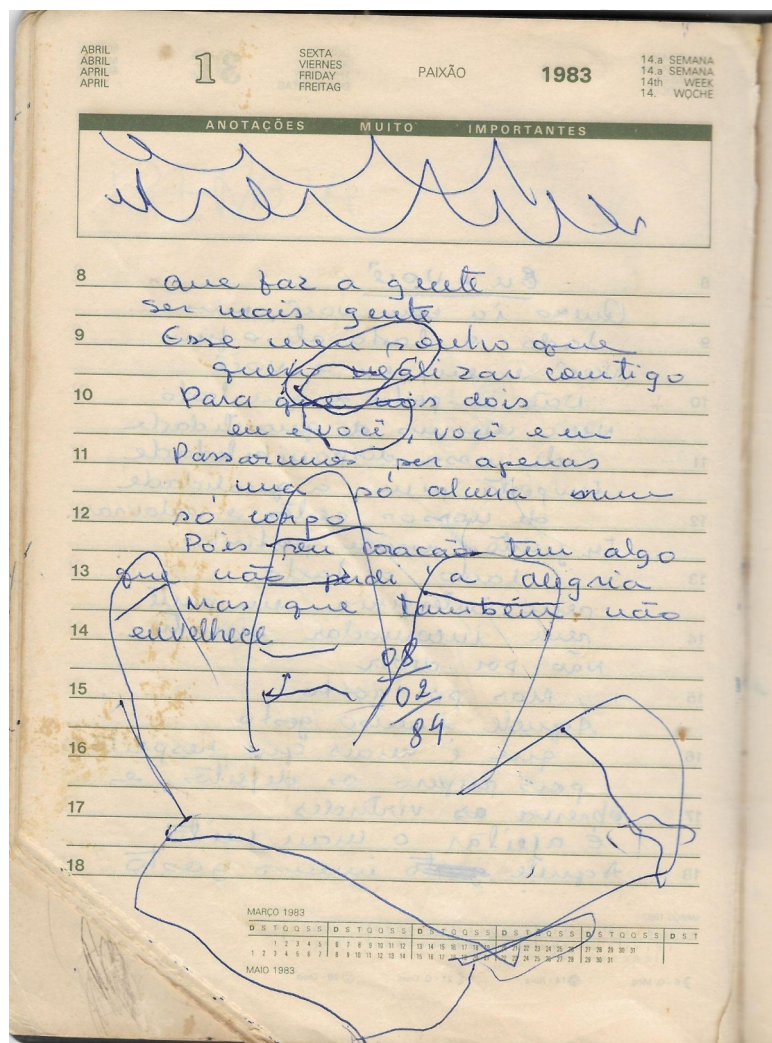 ABRIL
ABRIL
APRIL
APRIL
1
SEXTA
VIERNES
FRIDAY
FREITAG
PAIXÃO
1983
14.a SEMANA
14.a SEMANA
14th WEEK
14. WOCHE
ANOTAÇÕES MUITO IMPORTANTES
8 que faz a gente
ser mais gente
9 Esse meu sonho que
quero realizar comtigo
10 Para que nós dois
eu e você, você e eu
11 Passarmos ser apenas
uma só alma num
12 só corpo
Pois seu coração tem algo
13 que não perdi, a alegria
mas que também não
14 envelhece
08
15 02
84
16
17
18
MARÇO 1983
D S T Q Q S S D S T Q Q S S D S T Q Q S S D S T Q Q S S D S T Q Q S S D S T
1 2 3 4 5 6 7 8 9 10 11 12 13 14 15 16 17 18 19 20 21 22 23 24 25 26 27 28 29 30 31
MAIO 1983